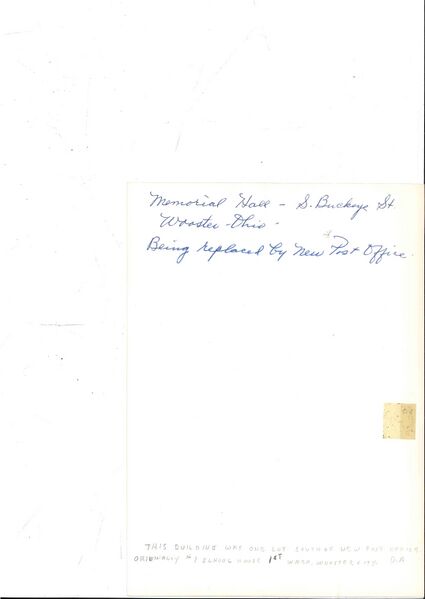 Memorial Hall - S. Buckeye St.
Wooster - Ohio -
Being replaced by new Post Office.
THIS BUILDING WAS ONE LOT SOUTH OF NEW POST OFFICE
ORIGINALLY #1 SCHOOL HOUSE 1ST WARD, WOOSTER CITY.